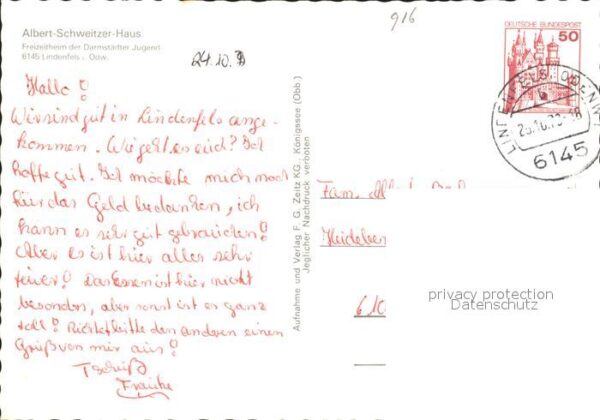 Albert-Schweitzer-Haus
Freizeitheim der Darmstädter Jugend
6145 Lindenfels . Odw.
916
24.10.
DEUTSCHE BUNDESPOST
50
LINDENFELS, ODENW
6145
Hallo!
Wir sind gut in Lindenfels ange-
kommen. Wie geht es euch? Ich
hoffe gut. Ich möchte mich noch
für das Geld bedanken, ich
kann es sehr gut gebrauchen!
Aber es ist hier alles sehr
teuer! Das Essen ist hier nicht
besonders, aber sonst ist es ganz
toll! Richtet bitte den anderen einen
Gruß von mir aus!
Tschüß
Frauke
Aufnahme und Verlag F. G. Zeitz KG., Königssee (Obb.)
Jeglicher Nachdruck verboten
Fam.
Heidelber
610
privacy protection
Datenschutz